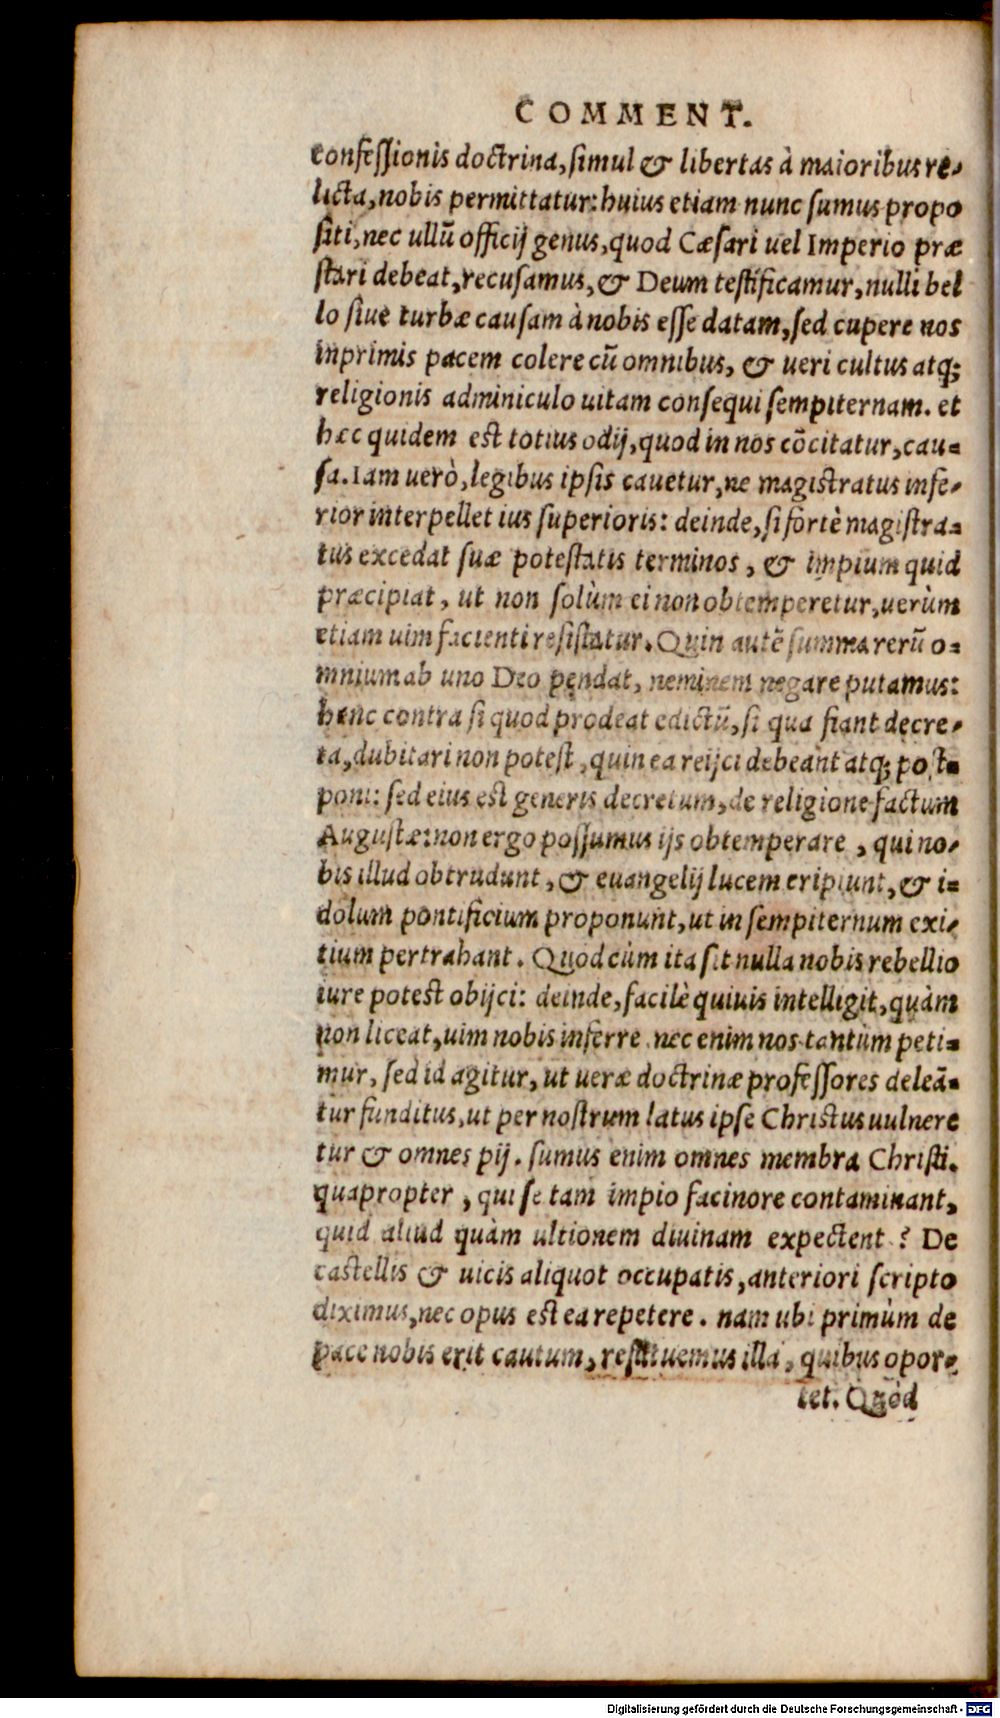 COMMENT.
confessionis doctrina, simul & libertas à maioribus re-
licta, nobis permittatur: huius etiam nunc sumus propo
siti, nec ullũ officij genus, quod Cæsari uel Imperio præ
stari debeat, recusamus, & Deum testificamur, nulli bel
lo siue turbæ causam à nobis esse datam, sed cupere nos
inprimis pacem colere cũ omnibus, & ueri cultus atq;
religionis adminiculo uitam consequi sempiternam. et
hæc quidem est totius odij, quod in nos cõcitatur, cau-
sa. Iam uerò, legibus ipsis cauetur, ne magistratus infe-
rior interpellet ius superioris: deinde, si fortè magistra-
tus excedat suæ potestatis terminos, & impium quid
præcipiat, ut non solùm ei non obtemperetur, uerùm
etiam uim facienti resistatur. Quin autẽ summa rerũ o-
mnium ab uno Deo pendat, neminem negare putamus:
hanc contra si quod prodeat edictũ, si qua fiant decre-
ta, dubitari non potest, quin ea reijci debeant atq; post-
poni: sed eius est generis decretum, de religione factum
Augustæ: non ergo possumus ijs obtemperare, qui no-
bis illud obtrudunt, & euangelij lucem eripiunt, & i-
dolum pontificium proponunt, ut in sempiternum exi-
tium pertrahant. Quod cùm ita sit nulla nobis rebellio
iure potest obijci: deinde, facilè quiuis intelligit, quàm
non liceat, uim nobis inferre. nec enim nos tantùm peti-
mur, sed id agitur, ut ueræ doctrinæ professores deleã-
tur funditus, ut per nostrum latus ipse Christus uulnere
tur & omnes pij. sumus enim omnes membra Christi.
quapropter, qui se tam impio facinore contaminant,
quid aliud quàm ultionem diuinam expectent? De
castellis & uicis aliquot occupatis, anteriori scripto
diximus, nec opus est ea repetere. nam ubi primùm de
pace nobis erit cautum, restituemus illa, quibus opor-
tet. Quòd
Digitalisierung gefördert durch die Deutsche Forschungsgemeinschaft - DFG